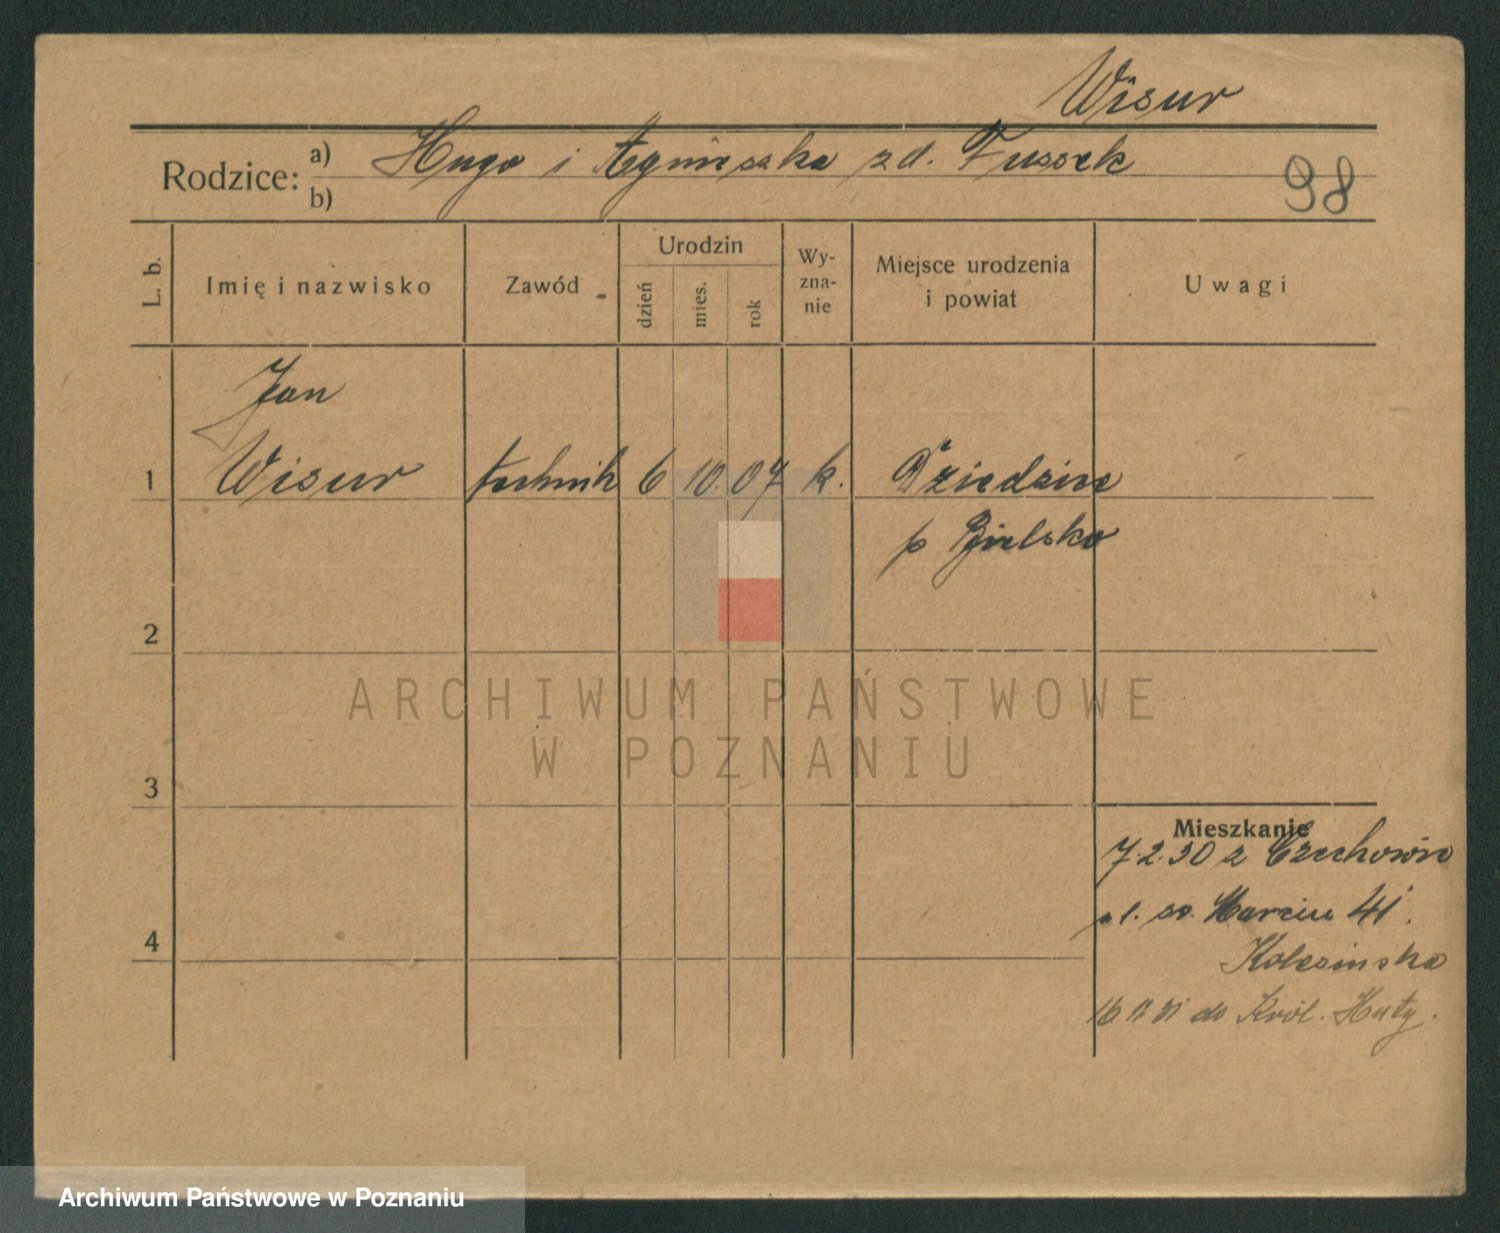 Wisur
Rodzice: a) Hugo i Agnieszka zd. Tussek
b)
98
L. b.
Imię i nazwisko
Zawód
Urodzin
dzień
mies.
rok
Wy-
zna-
nie
Miejsce urodzenia
i powiat
Uwagi
Jan
1 Wisur technik 6 10. 07 k. Dziedzice
p Bielsko
2
ARCHIWUM PAŃSTWOWE
W POZNANIU
3
Mieszkanie
7.2.30 z Czechowic
św. Marcin 41.
4
Kolesinska
16 11 31 do Król. Huty.
Archiwum Państwowe w Poznaniu